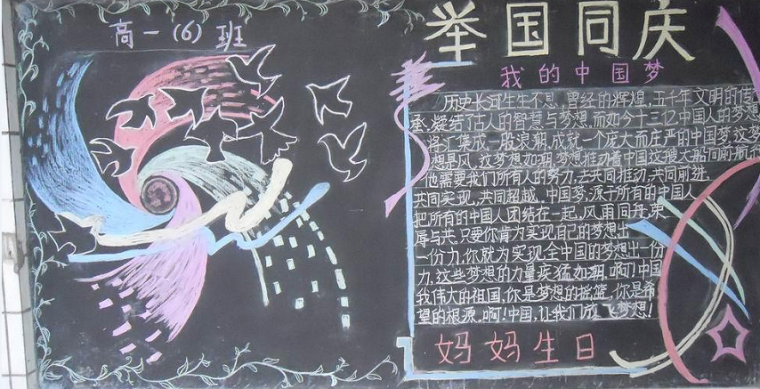 高一(6)班
举国同庆
我的中国梦
历史长河生生不息,曾经的辉煌,五千年文明的传
承,凝结了古人的智慧与梦想,而如今十三亿中国人的梦想
将汇集成一股浪潮,成就一个庞大而庄严的中国梦,这梦
想是风,这梦想如潮,梦想推动着中国这艘大船向前航行
他需要我们所有人的努力,去共同推动,共同前进,
共同实现,共同超越。中国梦,源于所有的中国人
把所有的中国人团结在一起,风雨同舟,荣
辱与共,只要你肯为实现自己的梦想出
一份力,你就为实现全中国的梦想出一份
力,这些梦想的力量疾猛如潮,啊!中国
我伟大的祖国,你是梦想的摇篮,你是希
望的根源,啊!中国,让我们放飞梦想!
妈妈生日